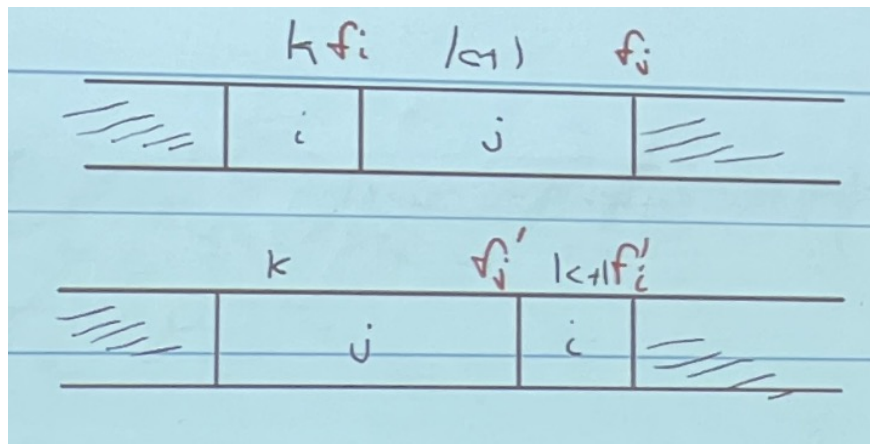 k fi k+1 fj
i j
k fj' k+1 fi'
j i